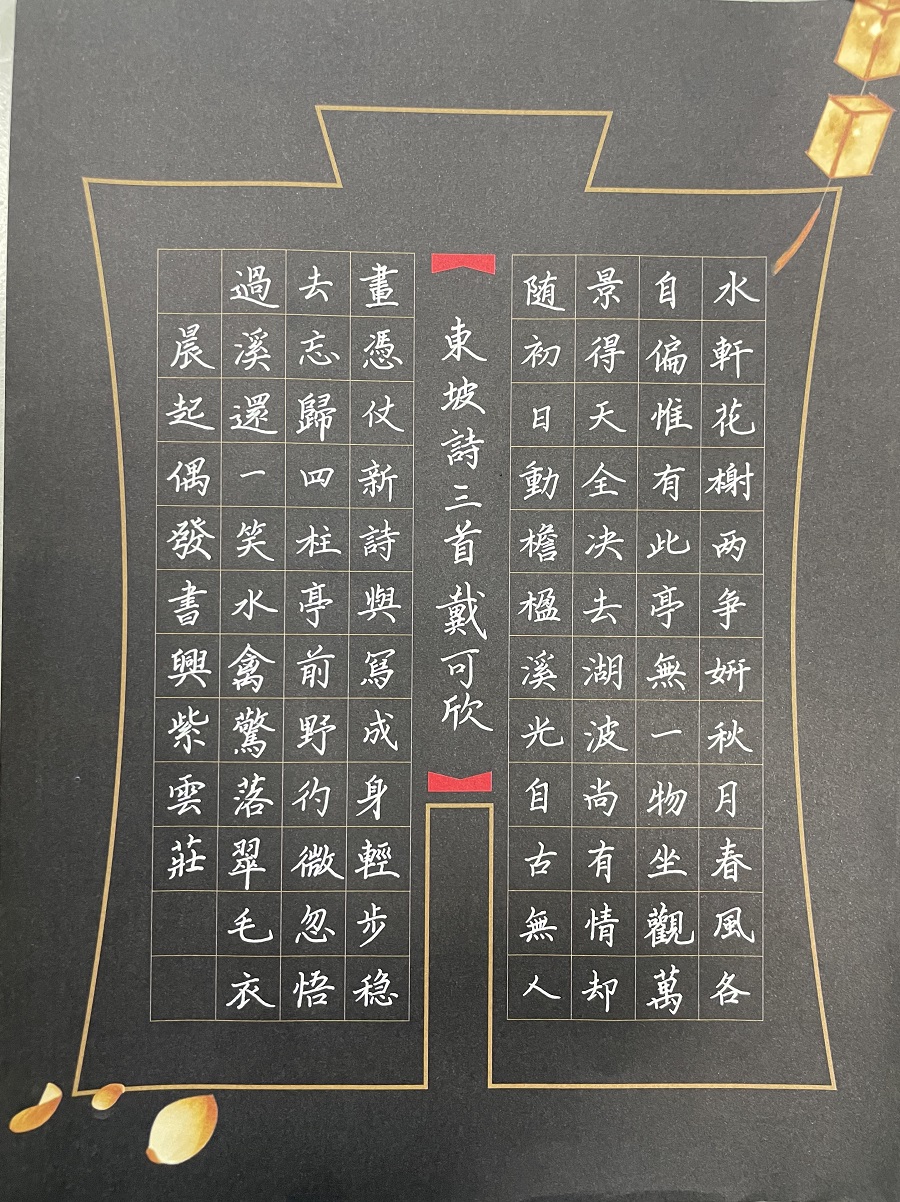 水軒花榭两争妍秋月春風各
自偏惟有此亭無一物坐觀萬
景得天全决去湖波尚有情却
随初日動檐楹溪光自古無人
東坡詩三首戴可欣
畫憑仗新詩與寫成身輕步稳
去忘歸四柱亭前野彴微忽悟
過溪還一笑水禽驚落翠毛衣
晨起偶發書興紫雲莊